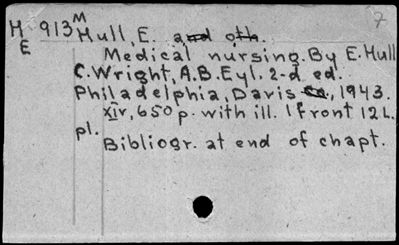 7
M
H 913 Hull, E. and oth.
E
Medical nursing. By E. Hull
C. Wright, A.B. Eyl. 2-d ed.
Philadelphia, Davis Co, 1943.
XIV, 650 p. with ill. 1 front 12 L.
pl.
Bibliogr. at end of chapt.